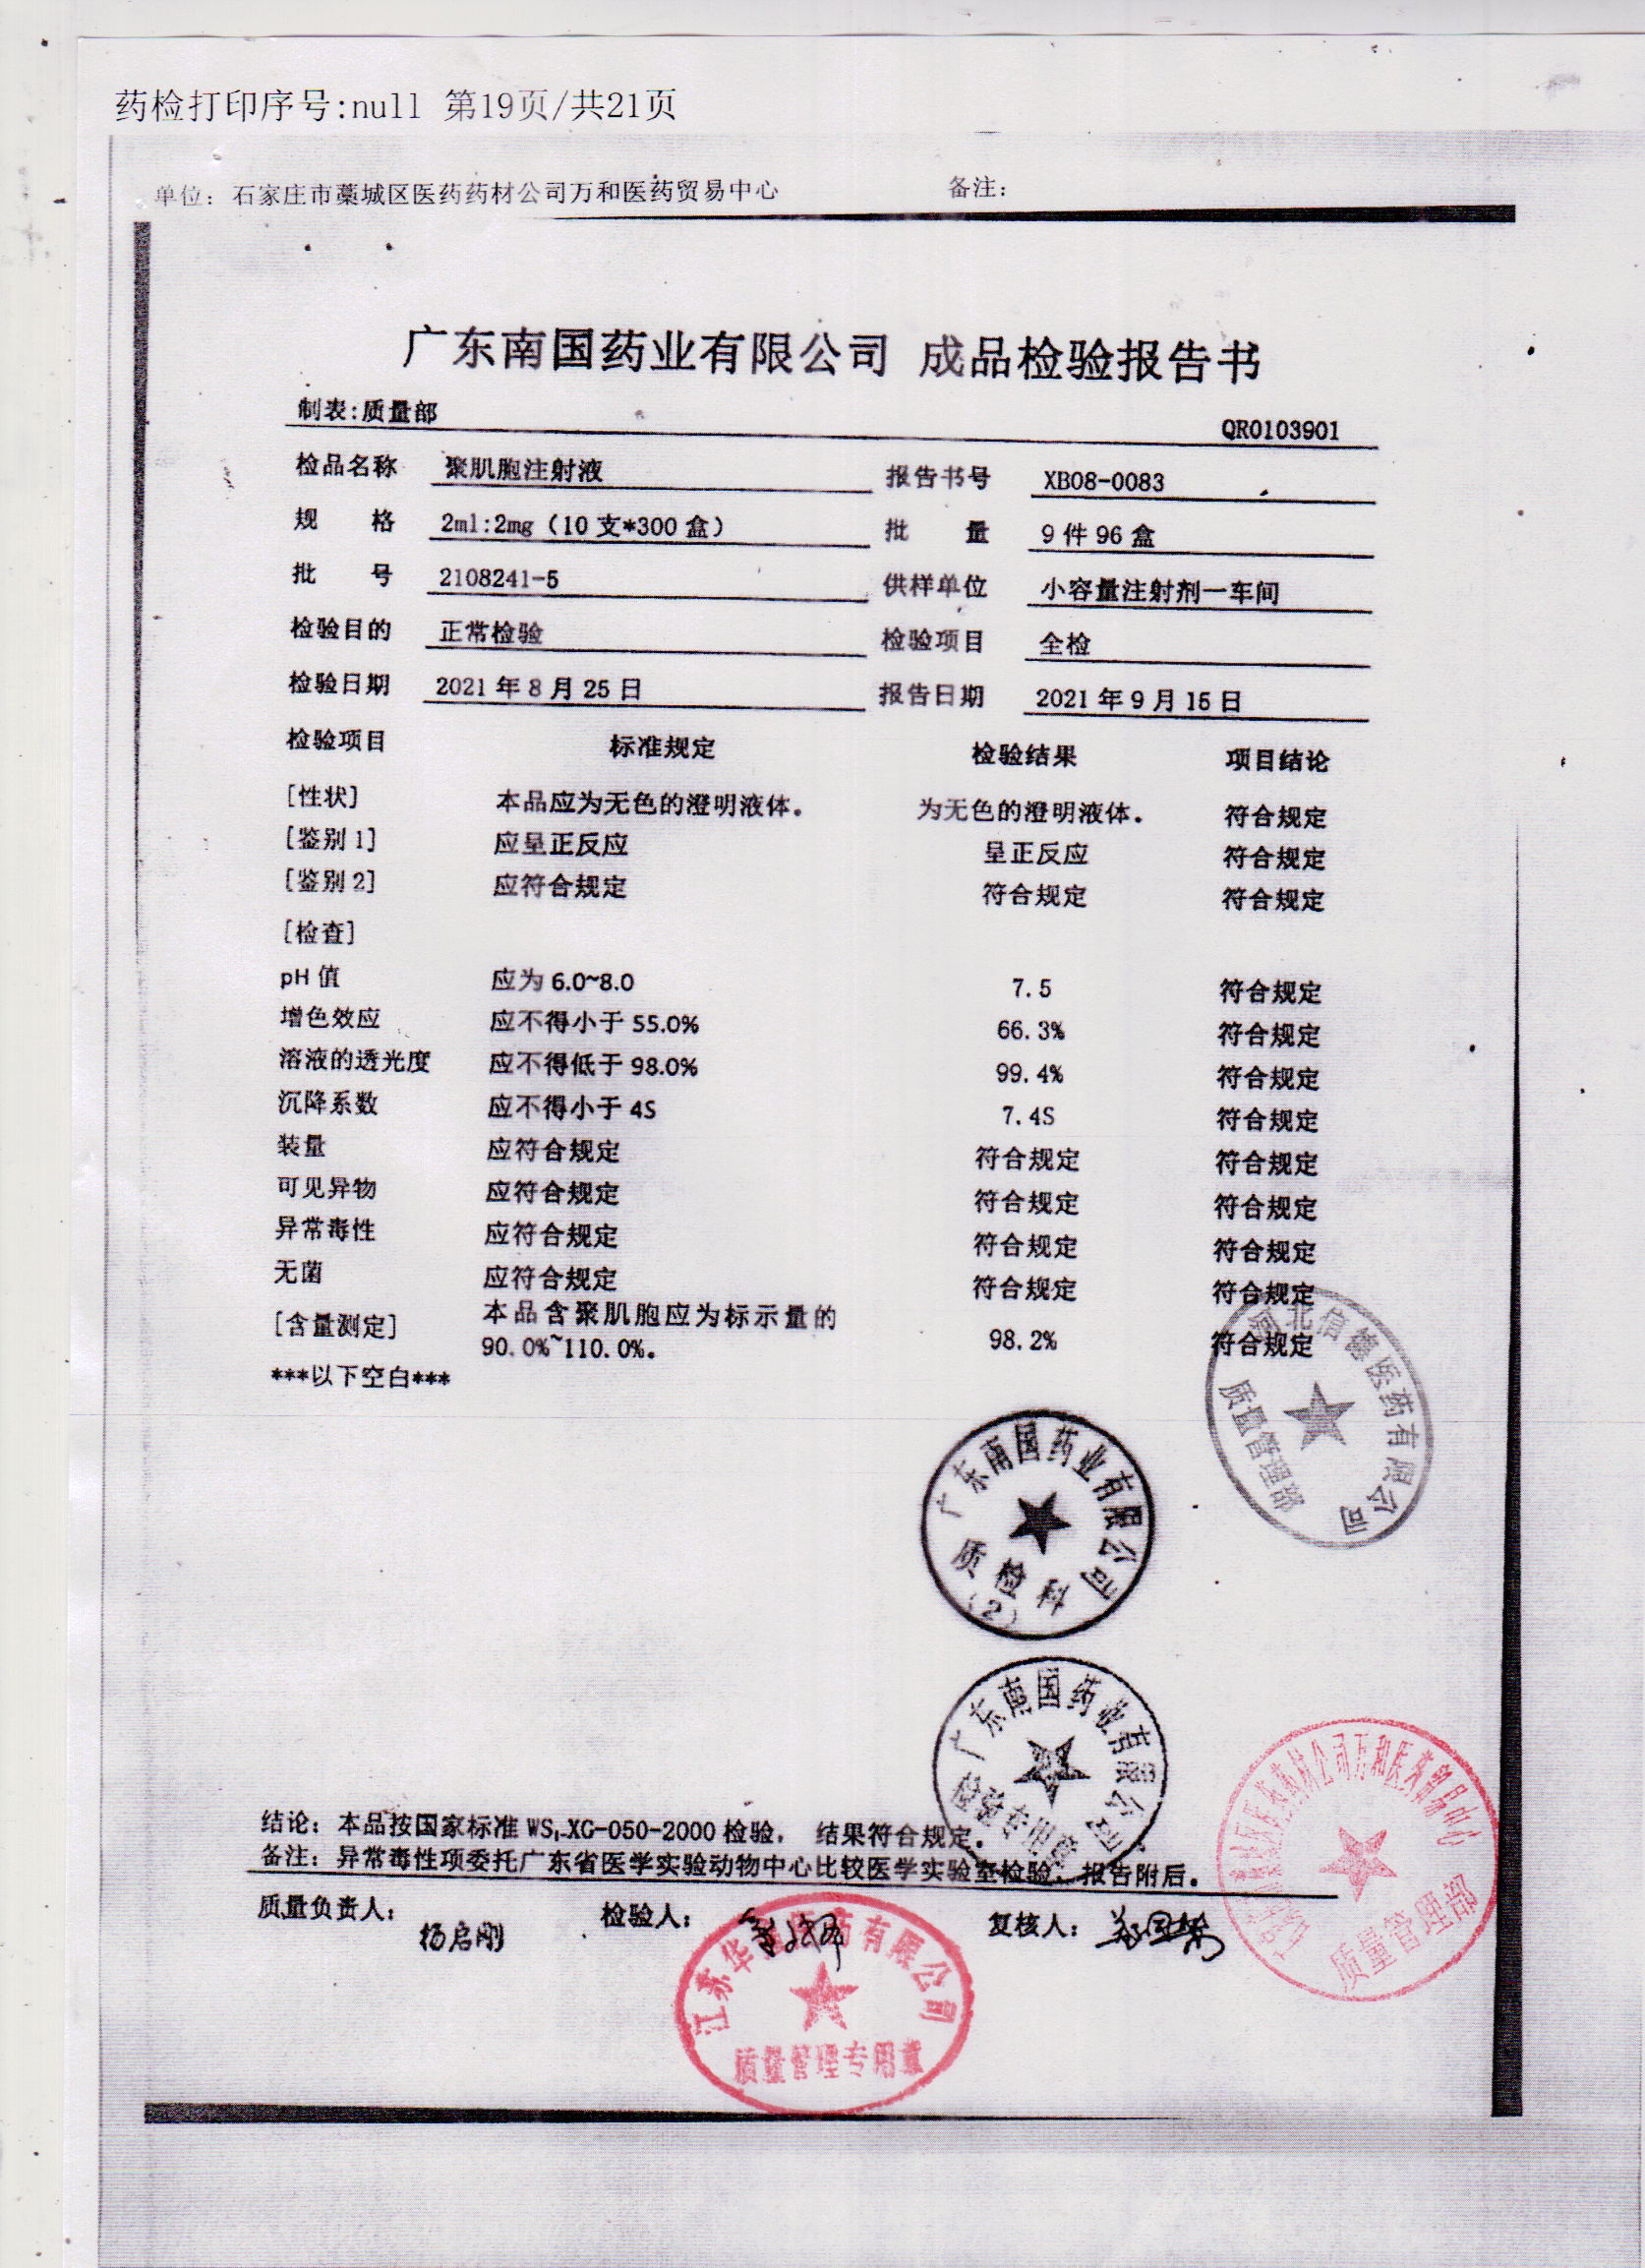 药检打印序号:null 第19页/共21页
单位：石家庄市藁城区医药药材公司万和医药贸易中心 备注：
广东南国药业有限公司 成品检验报告书
制表:质量部 QR0103901
检品名称 聚肌胞注射液 报告书号 XB08-0083
规 格 2ml:2mg（10 支*300 盒） 批 量 9 件 96 盒
批 号 2108241-5 供样单位 小容量注射剂一车间
检验目的 正常检验 检验项目 全检
检验日期 2021 年 8 月 25 日 报告日期 2021 年 9 月 15 日
检验项目 标准规定 检验结果 项目结论
[性状] 本品应为无色的澄明液体。 为无色的澄明液体。 符合规定
[鉴别 1] 应呈正反应 呈正反应 符合规定
[鉴别 2] 应符合规定 符合规定 符合规定
[检查]
pH 值 应为 6.0~8.0 7.5 符合规定
增色效应 应不得小于 55.0% 66.3% 符合规定
溶液的透光度 应不得低于 98.0% 99.4% 符合规定
沉降系数 应不得小于 4S 7.4S 符合规定
装量 应符合规定 符合规定 符合规定
可见异物 应符合规定 符合规定 符合规定
异常毒性 应符合规定 符合规定 符合规定
无菌 应符合规定 符合规定 符合规定
[含量测定] 本品含聚肌胞应为标示量的 98.2% 符合规定
90.0%~110.0%。
***以下空白***
河北信德医药有限公司
质量管理部
广东南国药业有限公司
质检科
(2)
广东南国药业有限公司
检验专用章
结论：本品按国家标准 WS₁-XG-050-2000 检验， 结果符合规定。
备注：异常毒性项委托广东省医学实验动物中心比较医学实验室检验，报告附后。
质量负责人： 杨启刚 检验人： 复核人：
医药药材公司万和医药贸易中心
质量管理部
江苏华 医药有限公司
质量管理专用章